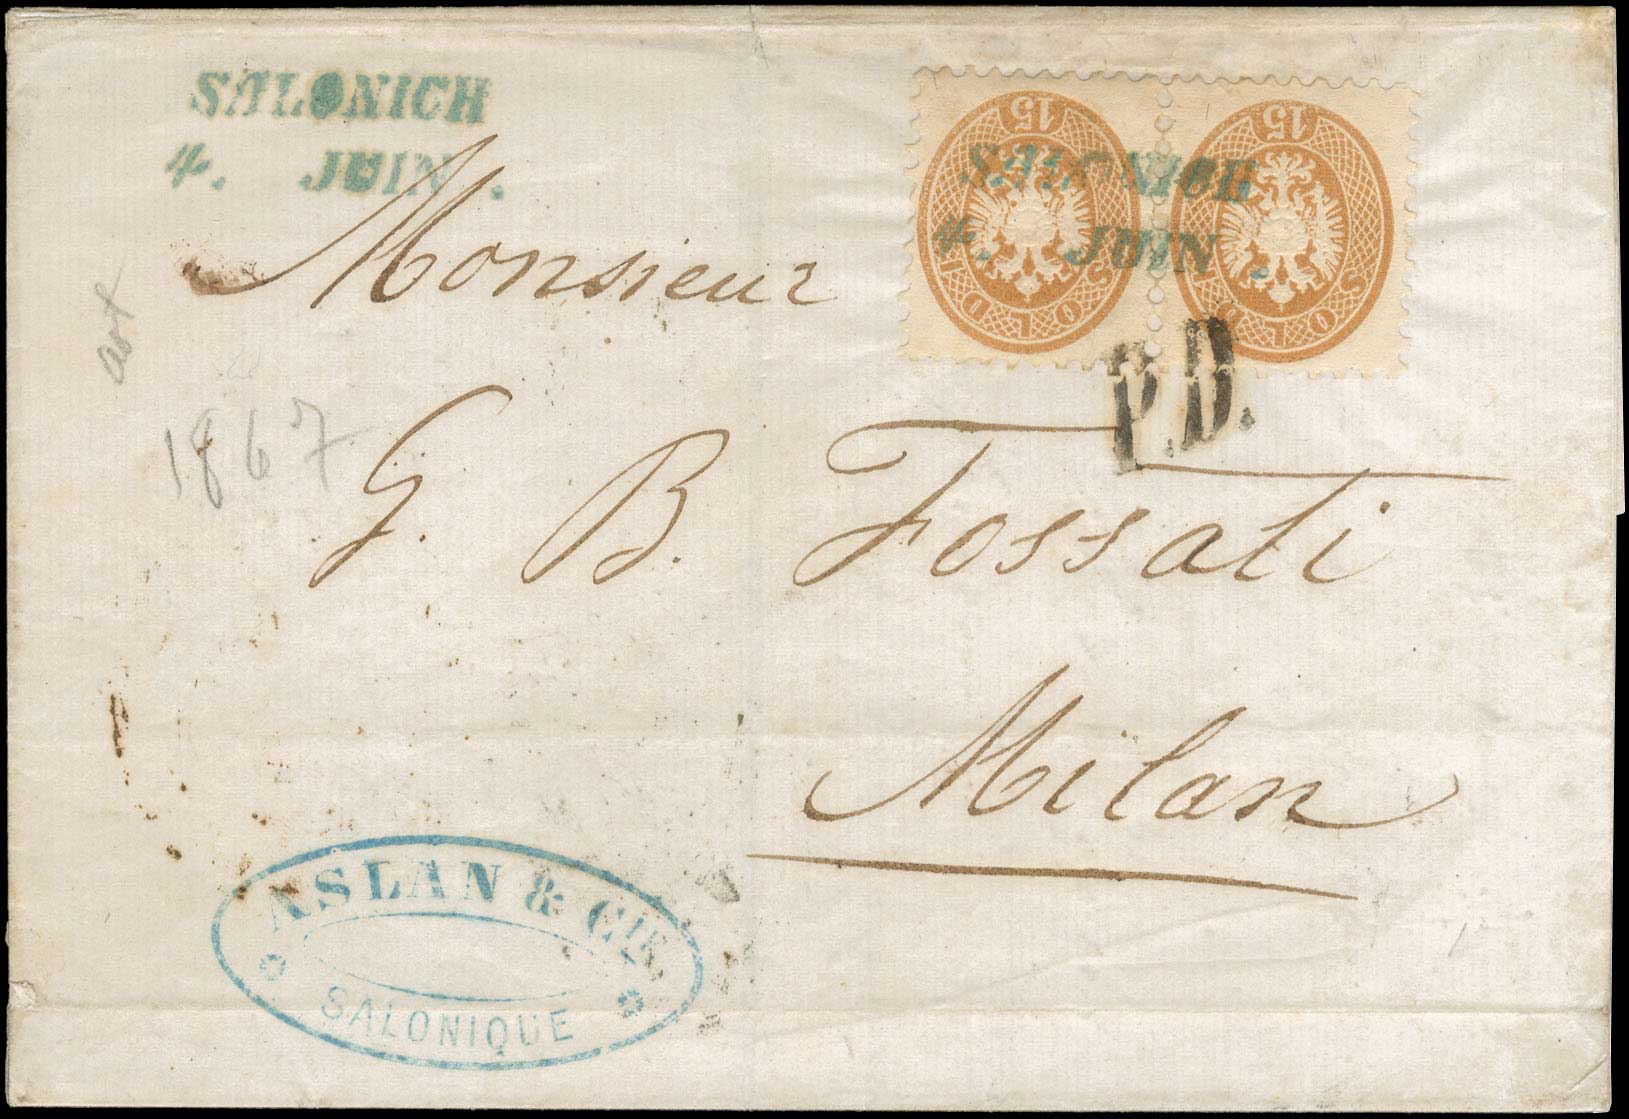 SALONICH
4. JUIN.
15 SOLDI
15 SOLDI
SALONICH
4. JUIN.
P.D.
Monsieur
1867
G. B. Fossati
Milan
ASLAN & CIE.
SALONIQUE